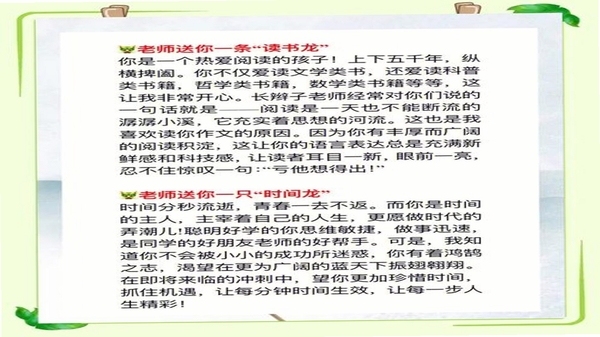 老师送你一条“读书龙”
你是一个热爱阅读的孩子！上下五千年，纵
横捭阖。你不仅爱读文学类书，还爱读科普
类书籍，哲学类书籍，数学类书籍等等，这
让我非常开心。长辫子老师经常对你们说的
一句话就是——阅读是一天也不能断流的
潺潺小溪，它充实着思想的河流。这也是我
喜欢读你作文的原因。因为你有丰厚而广阔
的阅读积淀，这让你的语言表达总是充满新
鲜感和科技感，让读者耳目一新，眼前一亮，
忍不住惊叹一句：“亏他想得出！”
老师送你一只“时间龙”
时间分秒流逝，青春一去不返。而你是时间
的主人，主宰着自己的人生，更愿做时代的
弄潮儿！聪明好学的你思维敏捷，做事迅速，
是同学的好朋友老师的好帮手。可是，我知
道你不会被小小的成功所迷惑，你有着鸿鹄
之志，渴望在更为广阔的蓝天下振翅翱翔。
在即将来临的冲刺中，望你更加珍惜时间，
抓住机遇，让每分钟时间生效，让每一步人
生精彩！